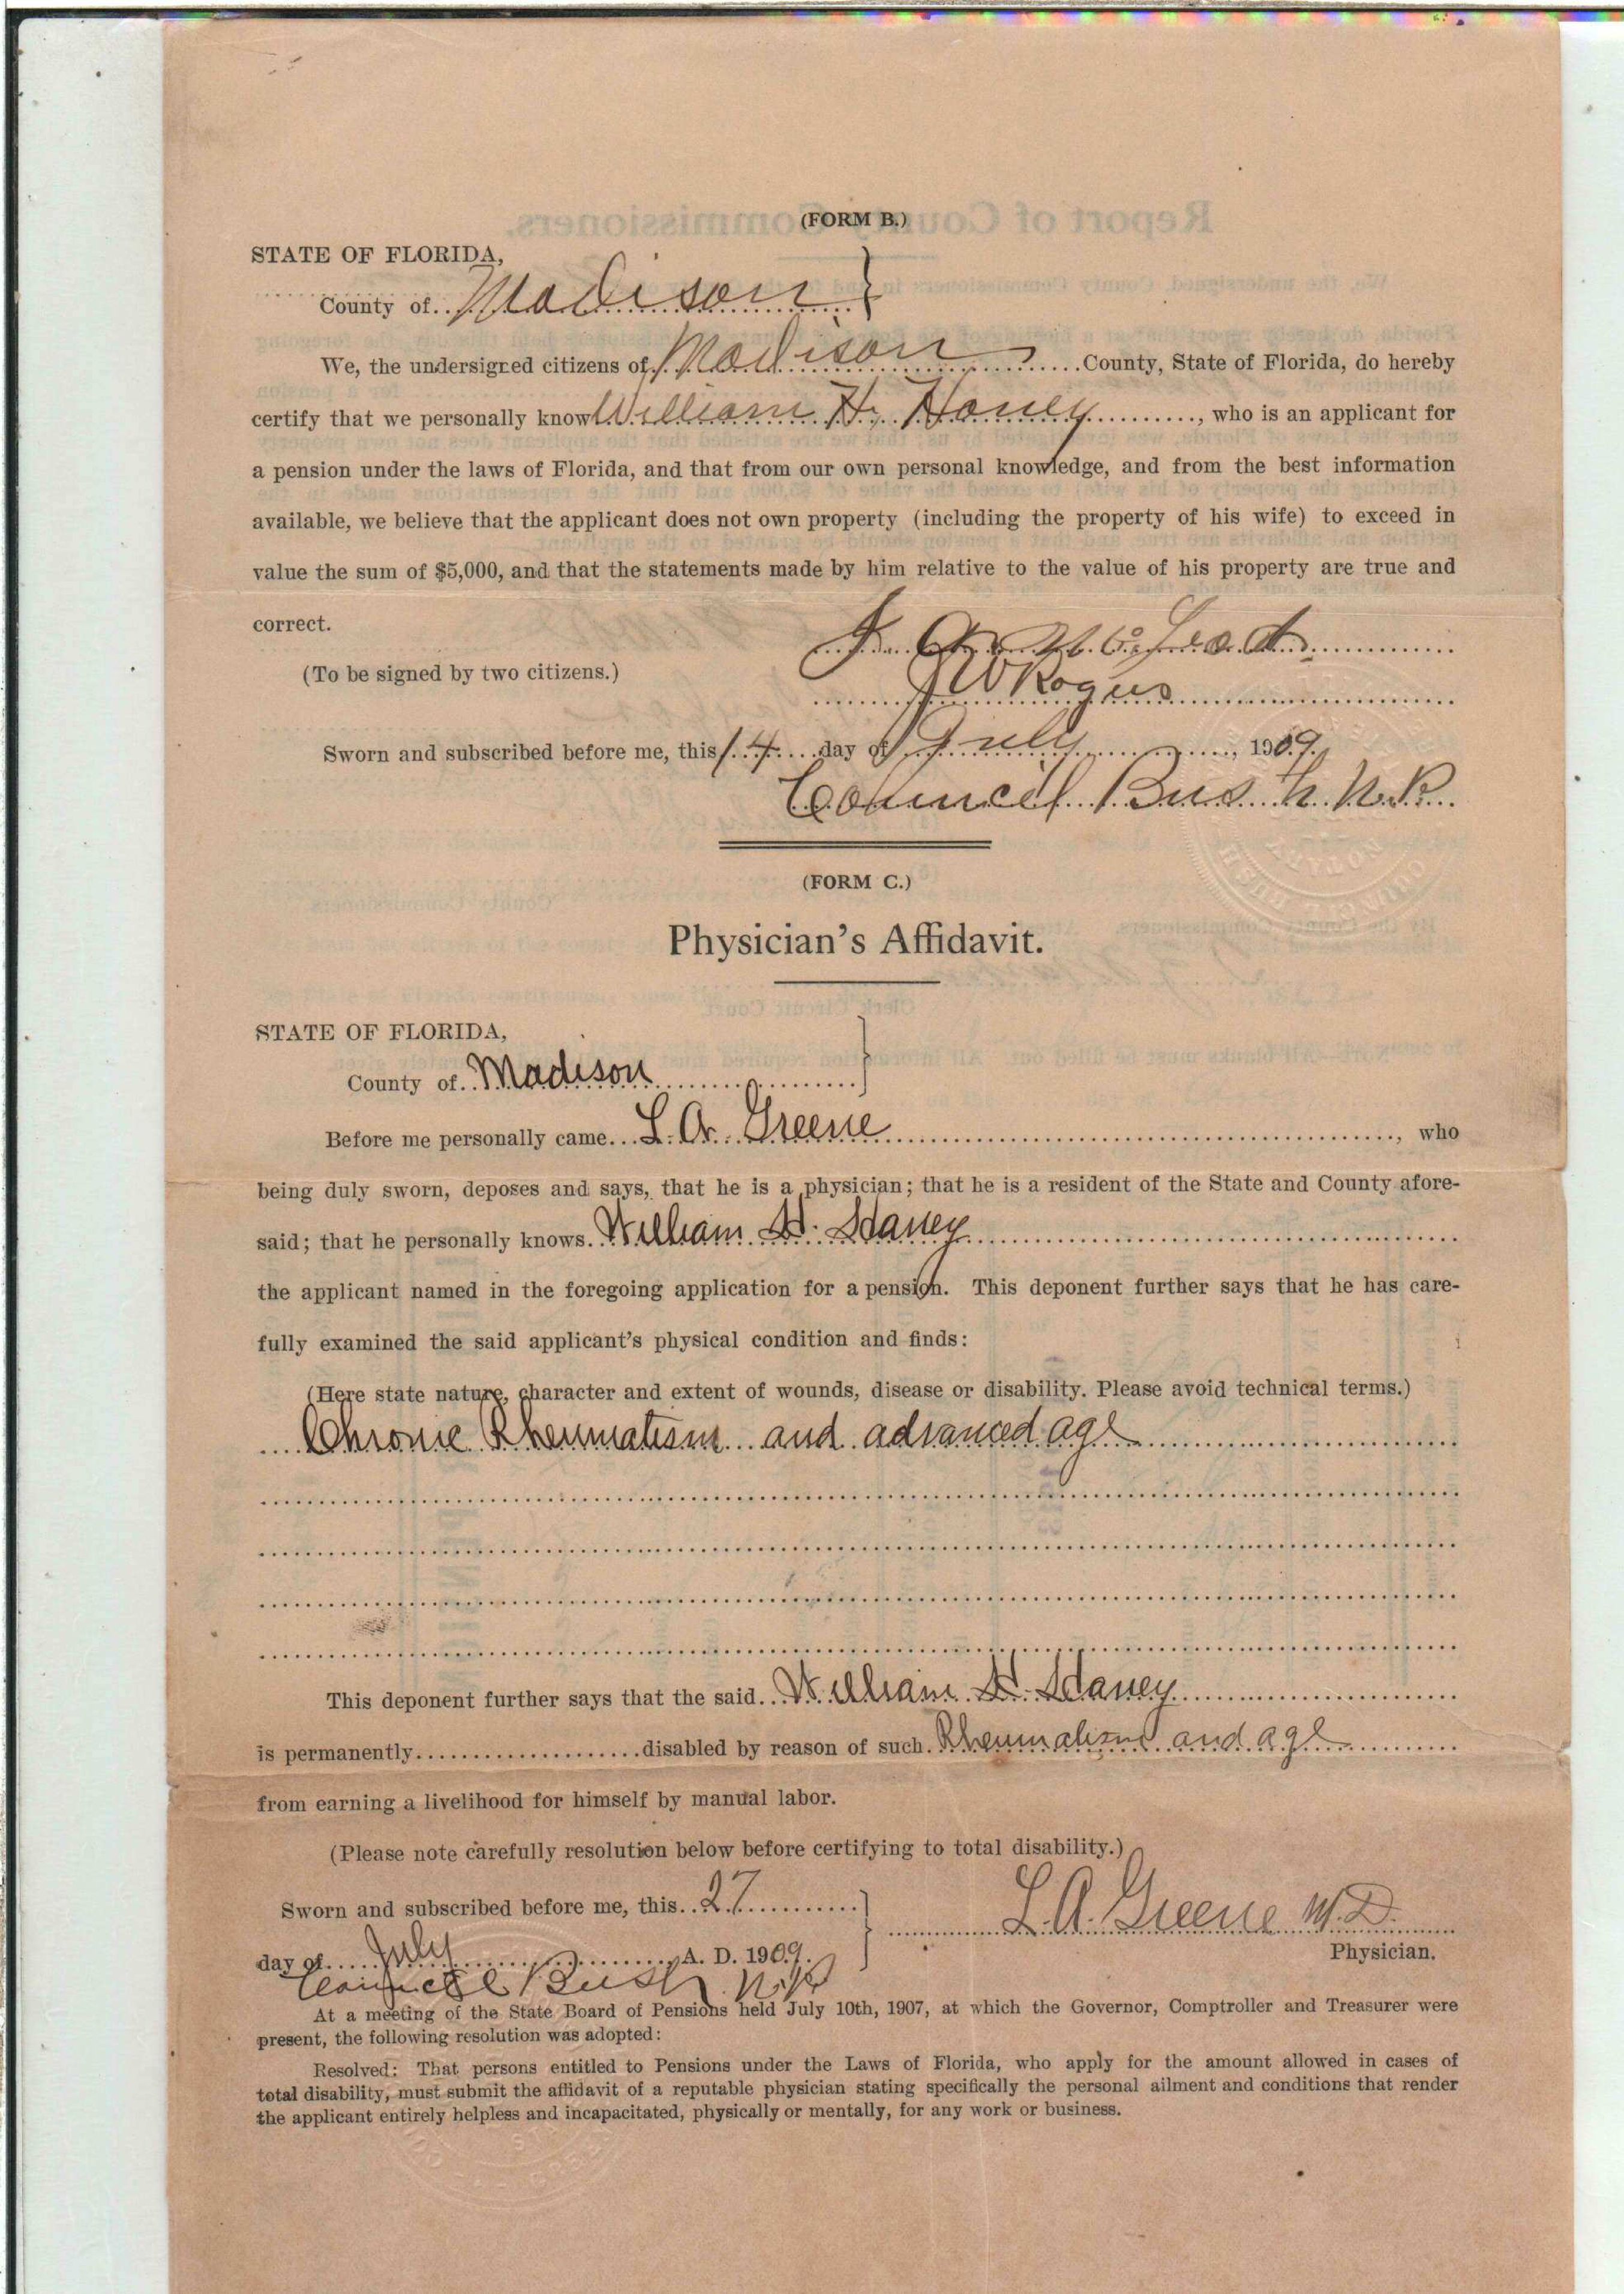 (FORM B.)
STATE OF FLORIDA,
County of Madison
We, the undersigned citizens of Madison County, State of Florida, do hereby
certify that we personally know William H. Haney, who is an applicant for
a pension under the laws of Florida, and that from our own personal knowledge, and from the best information
available, we believe that the applicant does not own property (including the property of his wife) to exceed in
value the sum of $5,000, and that the statements made by him relative to the value of his property are true and
correct.
McLeod
(To be signed by two citizens.)
J W Rogers
Sworn and subscribed before me, this 14 day of July, 1909.
Council Bush N.P.
(FORM C.)
Physician's Affidavit.
STATE OF FLORIDA,
County of Madison
Before me personally came L. A. Greene, who
being duly sworn, deposes and says, that he is a physician; that he is a resident of the State and County afore-
said; that he personally knows William H. Haney
the applicant named in the foregoing application for a pension. This deponent further says that he has care-
fully examined the said applicant's physical condition and finds:
(Here state nature, character and extent of wounds, disease or disability. Please avoid technical terms.)
Chronic Rheumatism and advanced age
This deponent further says that the said William H. Haney
is permanently disabled by reason of such Rheumatism and age
from earning a livelihood for himself by manual labor.
(Please note carefully resolution below before certifying to total disability.)
Sworn and subscribed before me, this 27
L. A. Greene M.D.
day of July A. D. 1909.
Physician.
Council Bush N.P.
At a meeting of the State Board of Pensions held July 10th, 1907, at which the Governor, Comptroller and Treasurer were
present, the following resolution was adopted:
Resolved: That persons entitled to Pensions under the Laws of Florida, who apply for the amount allowed in cases of
total disability, must submit the affidavit of a reputable physician stating specifically the personal ailment and conditions that render
the applicant entirely helpless and incapacitated, physically or mentally, for any work or business.